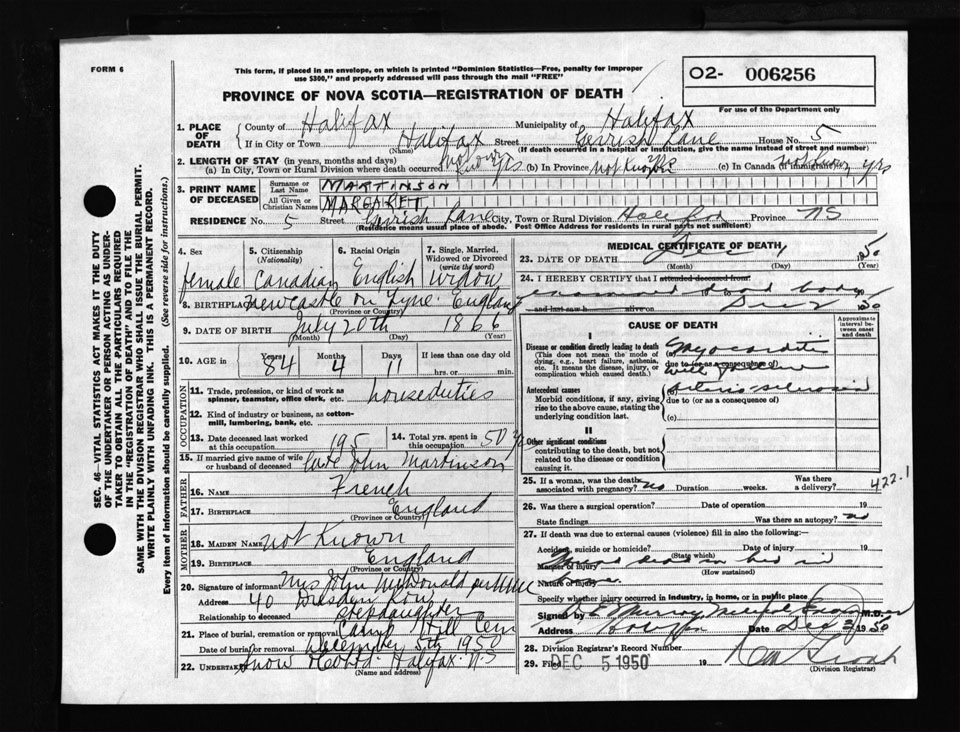 FORM 6
This form, if placed in an envelope, on which is printed "Dominion Statistics—Free, penalty for improper
use $300," and properly addressed will pass through the mail "FREE"
PROVINCE OF NOVA SCOTIA—REGISTRATION OF DEATH
02- 006256
For use of the Department only
SEC. 46—VITAL STATISTICS ACT MAKES IT THE DUTY
OF THE UNDERTAKER OR PERSON ACTING AS UNDER-
TAKER TO OBTAIN ALL THE PARTICULARS REQUIRED
IN THE "REGISTRATION OF DEATH" AND TO FILE THE
SAME WITH THE DIVISION REGISTRAR WHO SHALL ISSUE THE BURIAL PERMIT.
WRITE PLAINLY WITH UNFADING INK. THIS IS A PERMANENT RECORD.
Every item of Information should be carefully supplied. (See reverse side for instructions.)
1. PLACE OF DEATH County of Halifax Municipality of Halifax
If in City or Town Halifax Street Gerrish Lane House No. 5
(Name) (If death occurred in a hospital or institution, give the name instead of street and number)
2. LENGTH OF STAY (in years, months and days)
(a) In City, Town or Rural Division where death occurred yrs (b) In Province not Known (c) In Canada (if immigrant) not Known yrs
3. PRINT NAME OF DECEASED Surname or Last Name MARTINSON
All Given or Christian Names MARGARET
RESIDENCE No. 5 Street Gerrish Lane City, Town or Rural Division Halifax Province NS
(Residence means usual place of abode. Post Office Address for residents in rural parts not sufficient)
4. Sex 5. Citizenship (Nationality) 6. Racial Origin 7. Single, Married, Widowed or Divorced (write the word)
female Canadian English Widow
8. BIRTHPLACE Newcastle on Tyne. England
(Province or Country)
9. DATE OF BIRTH July 20th 1866
(Month) (Day) (Year)
10. AGE in Years 84 Months 4 Days 11 If less than one day old hrs. or min.
OCCUPATION
11. Trade, profession, or kind of work as spinner, teamster, office clerk, etc. houseduties
12. Kind of industry or business, as cotton-mill, lumbering, bank, etc.
13. Date deceased last worked at this occupation 195 14. Total yrs. spent in this occupation 50
15. If married give name of wife or husband of deceased late John Martinson
FATHER
16. NAME French
17. BIRTHPLACE England
(Province or Country)
MOTHER
18. MAIDEN NAME not Known
19. BIRTHPLACE England
(Province or Country)
20. Signature of informant Mrs John McDonald per
Address 40 Dresden Row
Relationship to deceased stepdaughter
21. Place of burial, cremation or removal Camp Hill Cem
Date of burial or removal December 5th 1950
22. UNDERTAKER Snow & Co Ltd. Halifax. N.S
(Name and address)
MEDICAL CERTIFICATE OF DEATH
23. DATE OF DEATH Dec 1 1950
(Month) (Day) (Year)
24. I HEREBY CERTIFY that I attended deceased from
examined dead body
and last saw h alive on Dec 2 1950
CAUSE OF DEATH
Approximate interval between onset and death
I
Disease or condition directly leading to death
(This does not mean the mode of dying, e.g., heart failure, asthenia, etc. It means the disease, injury, or complication which caused death.)
(a) Myocarditis
due to (or as a consequence of)
Antecedent causes
Morbid conditions, if any, giving rise to the above cause, stating the underlying condition last.
(b) Arterio-sclerosis
due to (or as a consequence of)
(c)
II
Other significant conditions
contributing to the death, but not related to the disease or condition causing it.
25. If a woman, was the death associated with pregnancy? no Duration weeks. Was there a delivery? 422.1
26. Was there a surgical operation? Date of operation 19
State findings Was there an autopsy? no
27. If death was due to external causes (violence) fill in also the following:—
Accident, suicide or homicide? Date of injury 19
(State which)
Manner of injury Found dead in bed in
(How sustained)
Nature of injury home.
Specify whether injury occurred in industry, in home, or in public place
Signed by Murray Medical Examiner M.D.
Address Halifax Date Dec 2 1950
28. Division Registrar's Record Number
29. Filed DEC 5 1950 19
(Division Registrar)